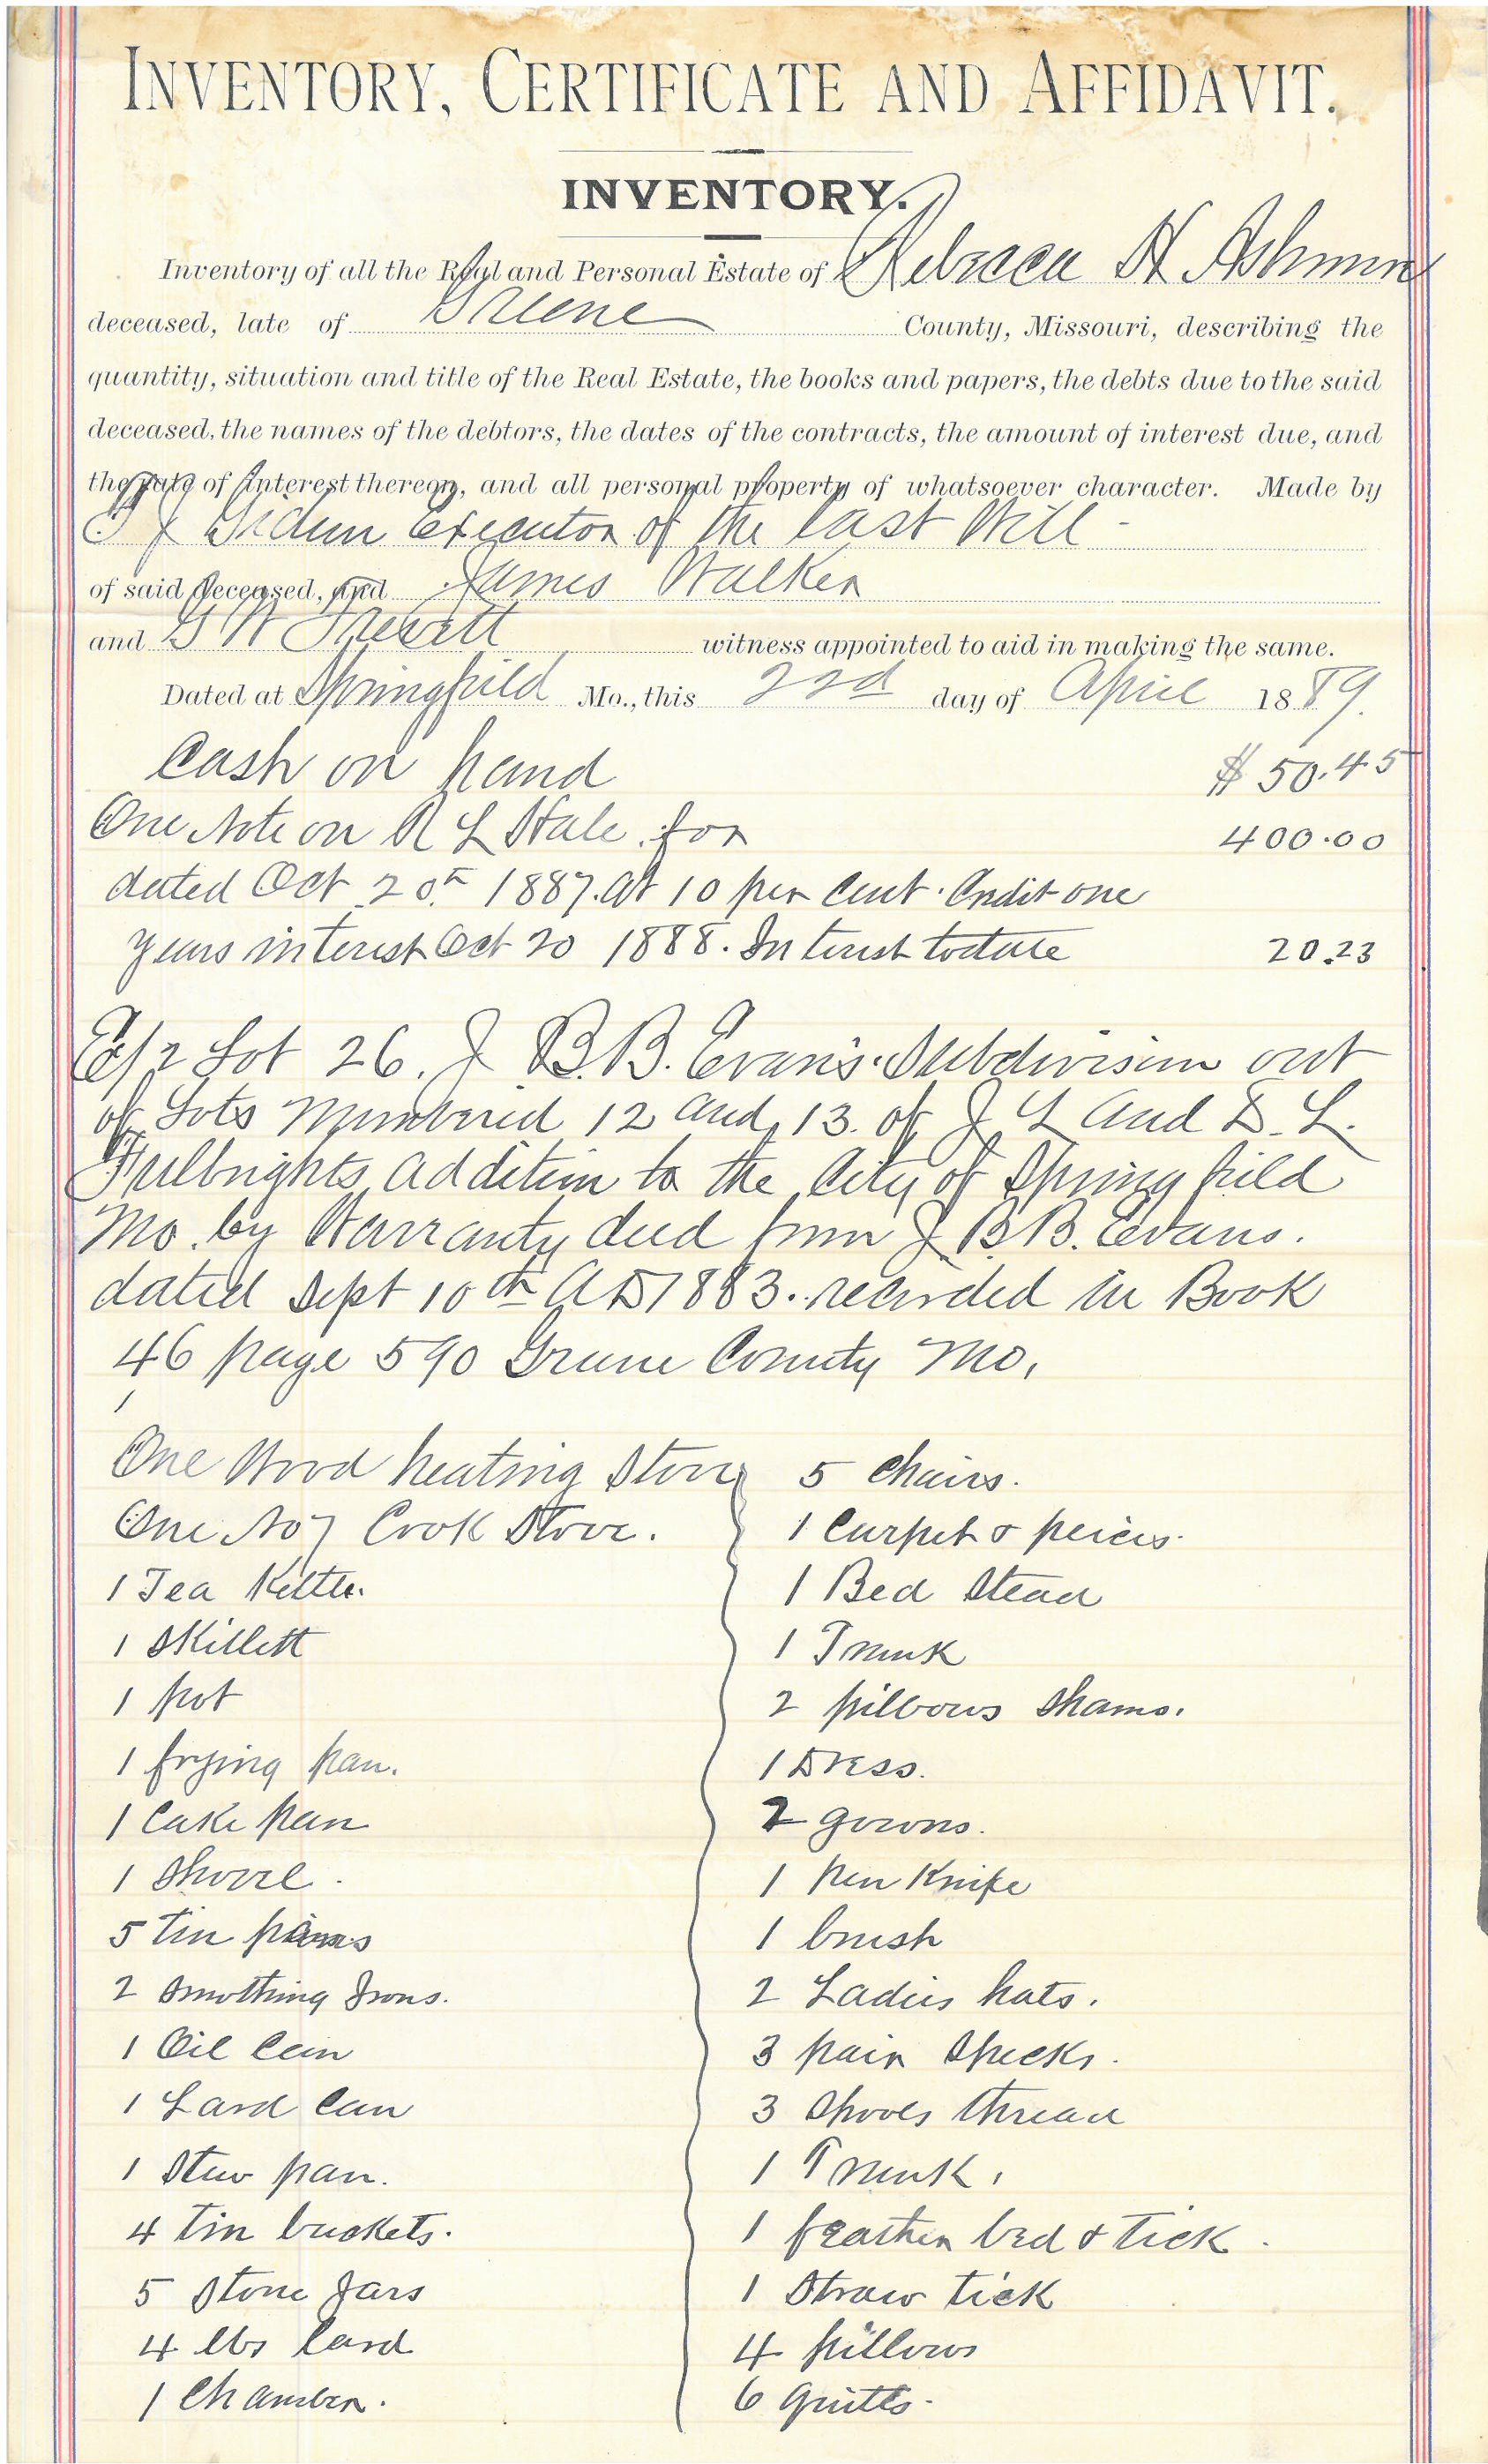 INVENTORY, CERTIFICATE AND AFFIDAVIT.
INVENTORY.
Inventory of all the Real and Personal Estate of Rebecca H Ashmore
deceased, late of Greene County, Missouri, describing the
quantity, situation and title of the Real Estate, the books and papers, the debts due to the said
deceased, the names of the debtors, the dates of the contracts, the amount of interest due, and
the rate of interest thereon, and all personal property of whatsoever character. Made by
T J Executor of the last Will -
of said deceased, and James Walker
and G W witness appointed to aid in making the same.
Dated at Springfield Mo., this 22d day of April 1889.
Cash on hand $50.45
One Note on R L Hale for 400.00
dated Oct 20th 1887. at 10 per cent. Credit one
years interest Oct 20 1888. Interest to date 20.23
E/2 Lot 26. J B.B. Evans. Subdivision out
of Lots Numbered 12 and 13. of J Y and D. L.
Fulbrights addition to the City of Springfield
Mo. by Warranty deed from J B B. Evans.
dated Sept 10th AD 1883. recorded in Book
46 page 590 Greene County Mo.
One Wood heating Stove 5 Chairs.
One No 7 Cook Stove. 1 Carpet & peices.
1 Tea Kettle. 1 Bed Stead
1 Skillett 1 Trunk
1 pot 2 pillows Shams.
1 frying pan. 1 Dress.
1 Cake pan 2 gowns.
1 Shovel. 1 pen Knife
5 tin pans 1 brush
2 Smothing Irons. 2 Ladies hats.
1 Oil Can 3 pair Specks.
1 Lard Can 3 Spools thread
1 Stew pan. 1 Trunk.
4 Tin buckets. 1 feather bed & tick.
5 Stone Jars 1 Straw tick
4 lbs lard 4 pillows
1 Chamber. 6 quilts.